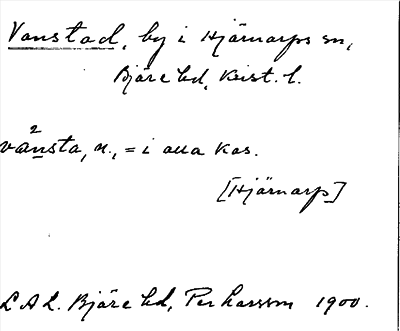 Vanstad, by i Hjärnarps sn,
Bjäre hd, Krist. l.
vånsta, n., = i alla kas.
[Hjärnarp]
LAL. Bjäre hd, Per Larsson 1900.